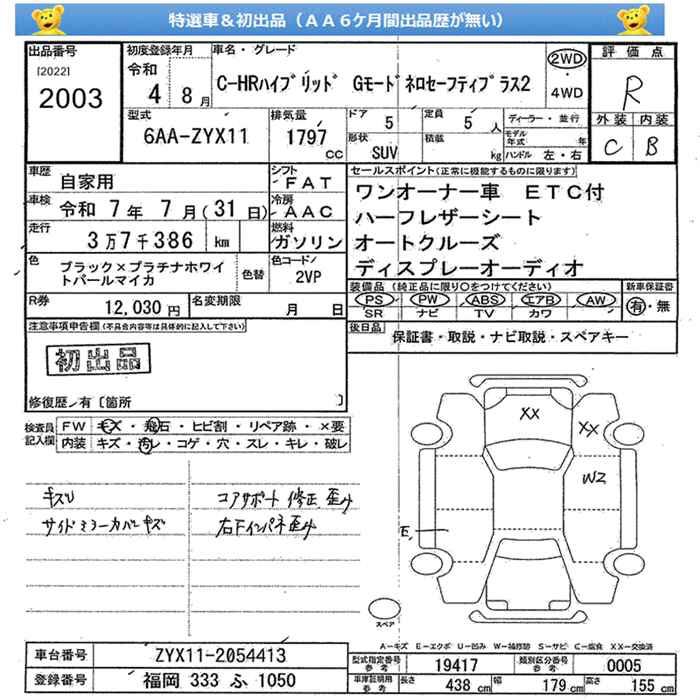 特選車＆初出品（ＡＡ６ケ月間出品歴が無い）
出品番号
[2022]
2003
初度登録年月
令和
4 8月
車名・グレード
C-HRハイブリッド Gモードネロセーフティプラス2
2WD
・
4WD
評価点
R
外装 内装
C B
型式
6AA-ZYX11
排気量
1797
CC
ドア 5
形状
SUV
定員 5 人
積載 kg
ディーラー・並行
モデル年式 年
ハンドル 左・右
車歴
自家用
シフト
FAT
車検 令和 7年 7月(31日)
冷房
AAC
走行
3万7千386 km
燃料
ガソリン
色
ブラック×プラチナホワイトパールマイカ
色替
色コード/
2VP
R券
12,030円
名変期限
月 日
セールスポイント(正常に機能するものに限ります)
ワンオーナー車 ETC付
ハーフレザーシート
オートクルーズ
ディスプレーオーディオ
装備品 (純正品に限り○をつけてください)
PS PW ABS エアB AW
SR ナビ TV カワ
新車保証書
有・無
後日品
保証書・取説・ナビ取説・スペアキー
注意事項申告欄(不具合内容等は具体的に記入して下さい)
初出品
修復歴/有〔箇所 〕
検査員記入欄
FW キズ・飛石・ヒビ割・リペア跡・×要
内装 キズ・汚レ・コゲ・穴・スレ・キレ・破レ
キスリ
サイドミラーカバーキズ
コアサポート 修正 歪み
右Fインパネ歪み
XX
XX
W2
E
スペア
A－キズ E－エクボ U－凹み W－補修跡 S－サビ C－腐食 XX－交換済
車台番号
ZYX11-2054413
登録番号
福岡 333 ふ 1050
型式指定番号
参考
19417
類別区分番号
参考
0005
車庫証明用
参考
長さ 438 cm
幅 179 cm
高さ 155 cm